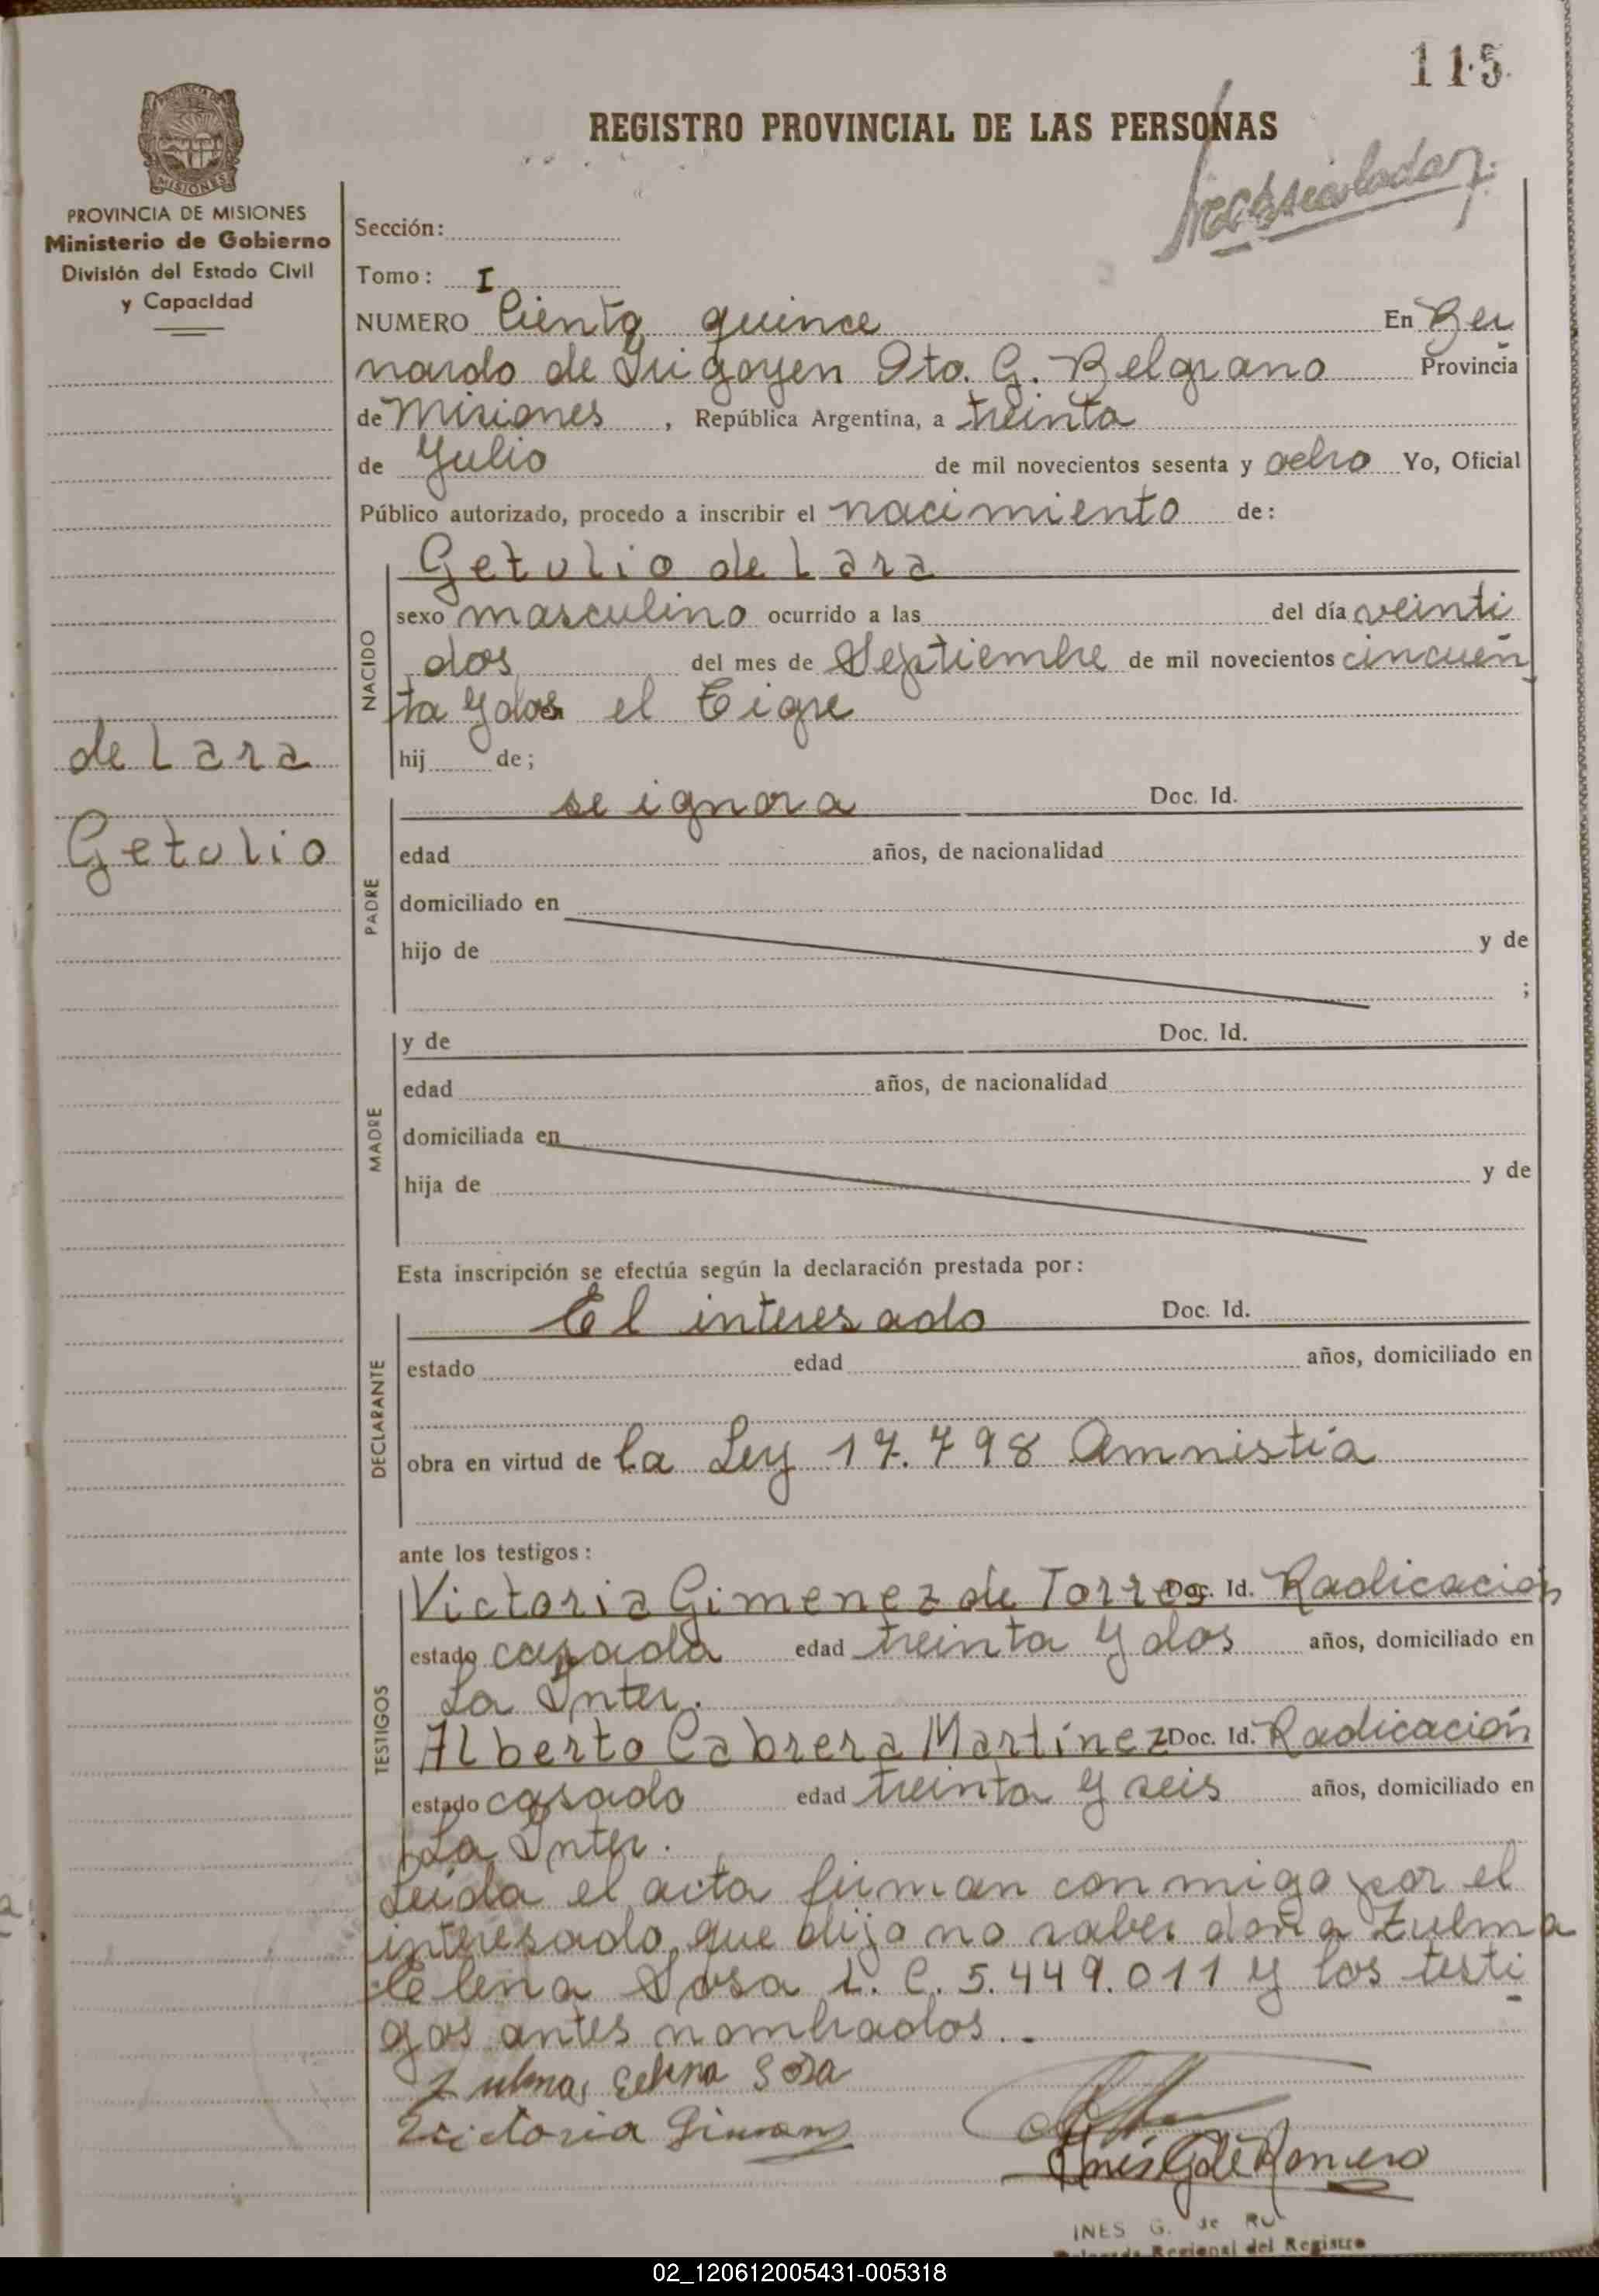 115
REGISTRO PROVINCIAL DE LAS PERSONAS
PROVINCIA DE MISIONES
MISIONES
PROVINCIA DE MISIONES
Ministerio de Gobierno
División del Estado Civil
y Capacidad
Sección:
Tomo: I
NUMERO Ciento quince En Ber
nardo de Irigoyen Dto. G. Belgrano Provincia
de Misiones, República Argentina, a treinta
de Julio de mil novecientos sesenta y ocho Yo, Oficial
Público autorizado, procedo a inscribir el nacimiento de:
Getulio de Lara
NACIDO
sexo masculino ocurrido a las del día veinti
dos del mes de Septiembre de mil novecientos cincuen
ta y dos el Tigre
de Lara
Getulio
hij de;
se ignora Doc. Id.
PADRE
edad años, de nacionalidad
domiciliado en
hijo de y de
;
MADRE
y de Doc. Id.
edad años, de nacionalidad
domiciliada en
hija de y de
Esta inscripción se efectúa según la declaración prestada por:
DECLARANTE
El interesado Doc. Id.
estado edad años, domiciliado en
obra en virtud de la Ley 17.798 Amnistía
ante los testigos:
TESTIGOS
Victoria Gimenez de Torres Doc. Id. Radicación
estado casada edad treinta y dos años, domiciliado en
La Inter.
Alberto Cabrera Martínez Doc. Id. Radicación
estado casado edad treinta y seis años, domiciliado en
La Inter.
Leída el acta firman conmigo por el
interesado, que dijo no saber doña Zulma
Elena Sosa L. C. 5.449.011 y los testi
gos antes nombrados.-
Zulma Elena Sosa
Victoria Gimenez
Inés G de Romero
INES G. de
Regional del Registro
02_120612005431-005318